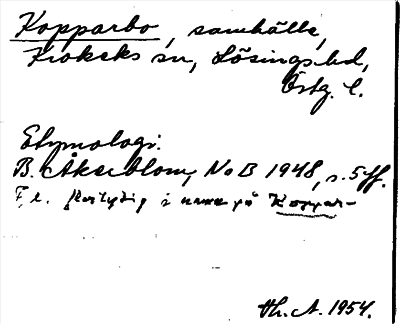 Kopparbo, samhälle,
Krokeks sn, Lösings hd,
Östg. l.
Etymologi:
B. Åkerblom, NoB 1948, s. 5 ff.
F. l. flertydig i namn på Koppar-
Th. A. 1954.